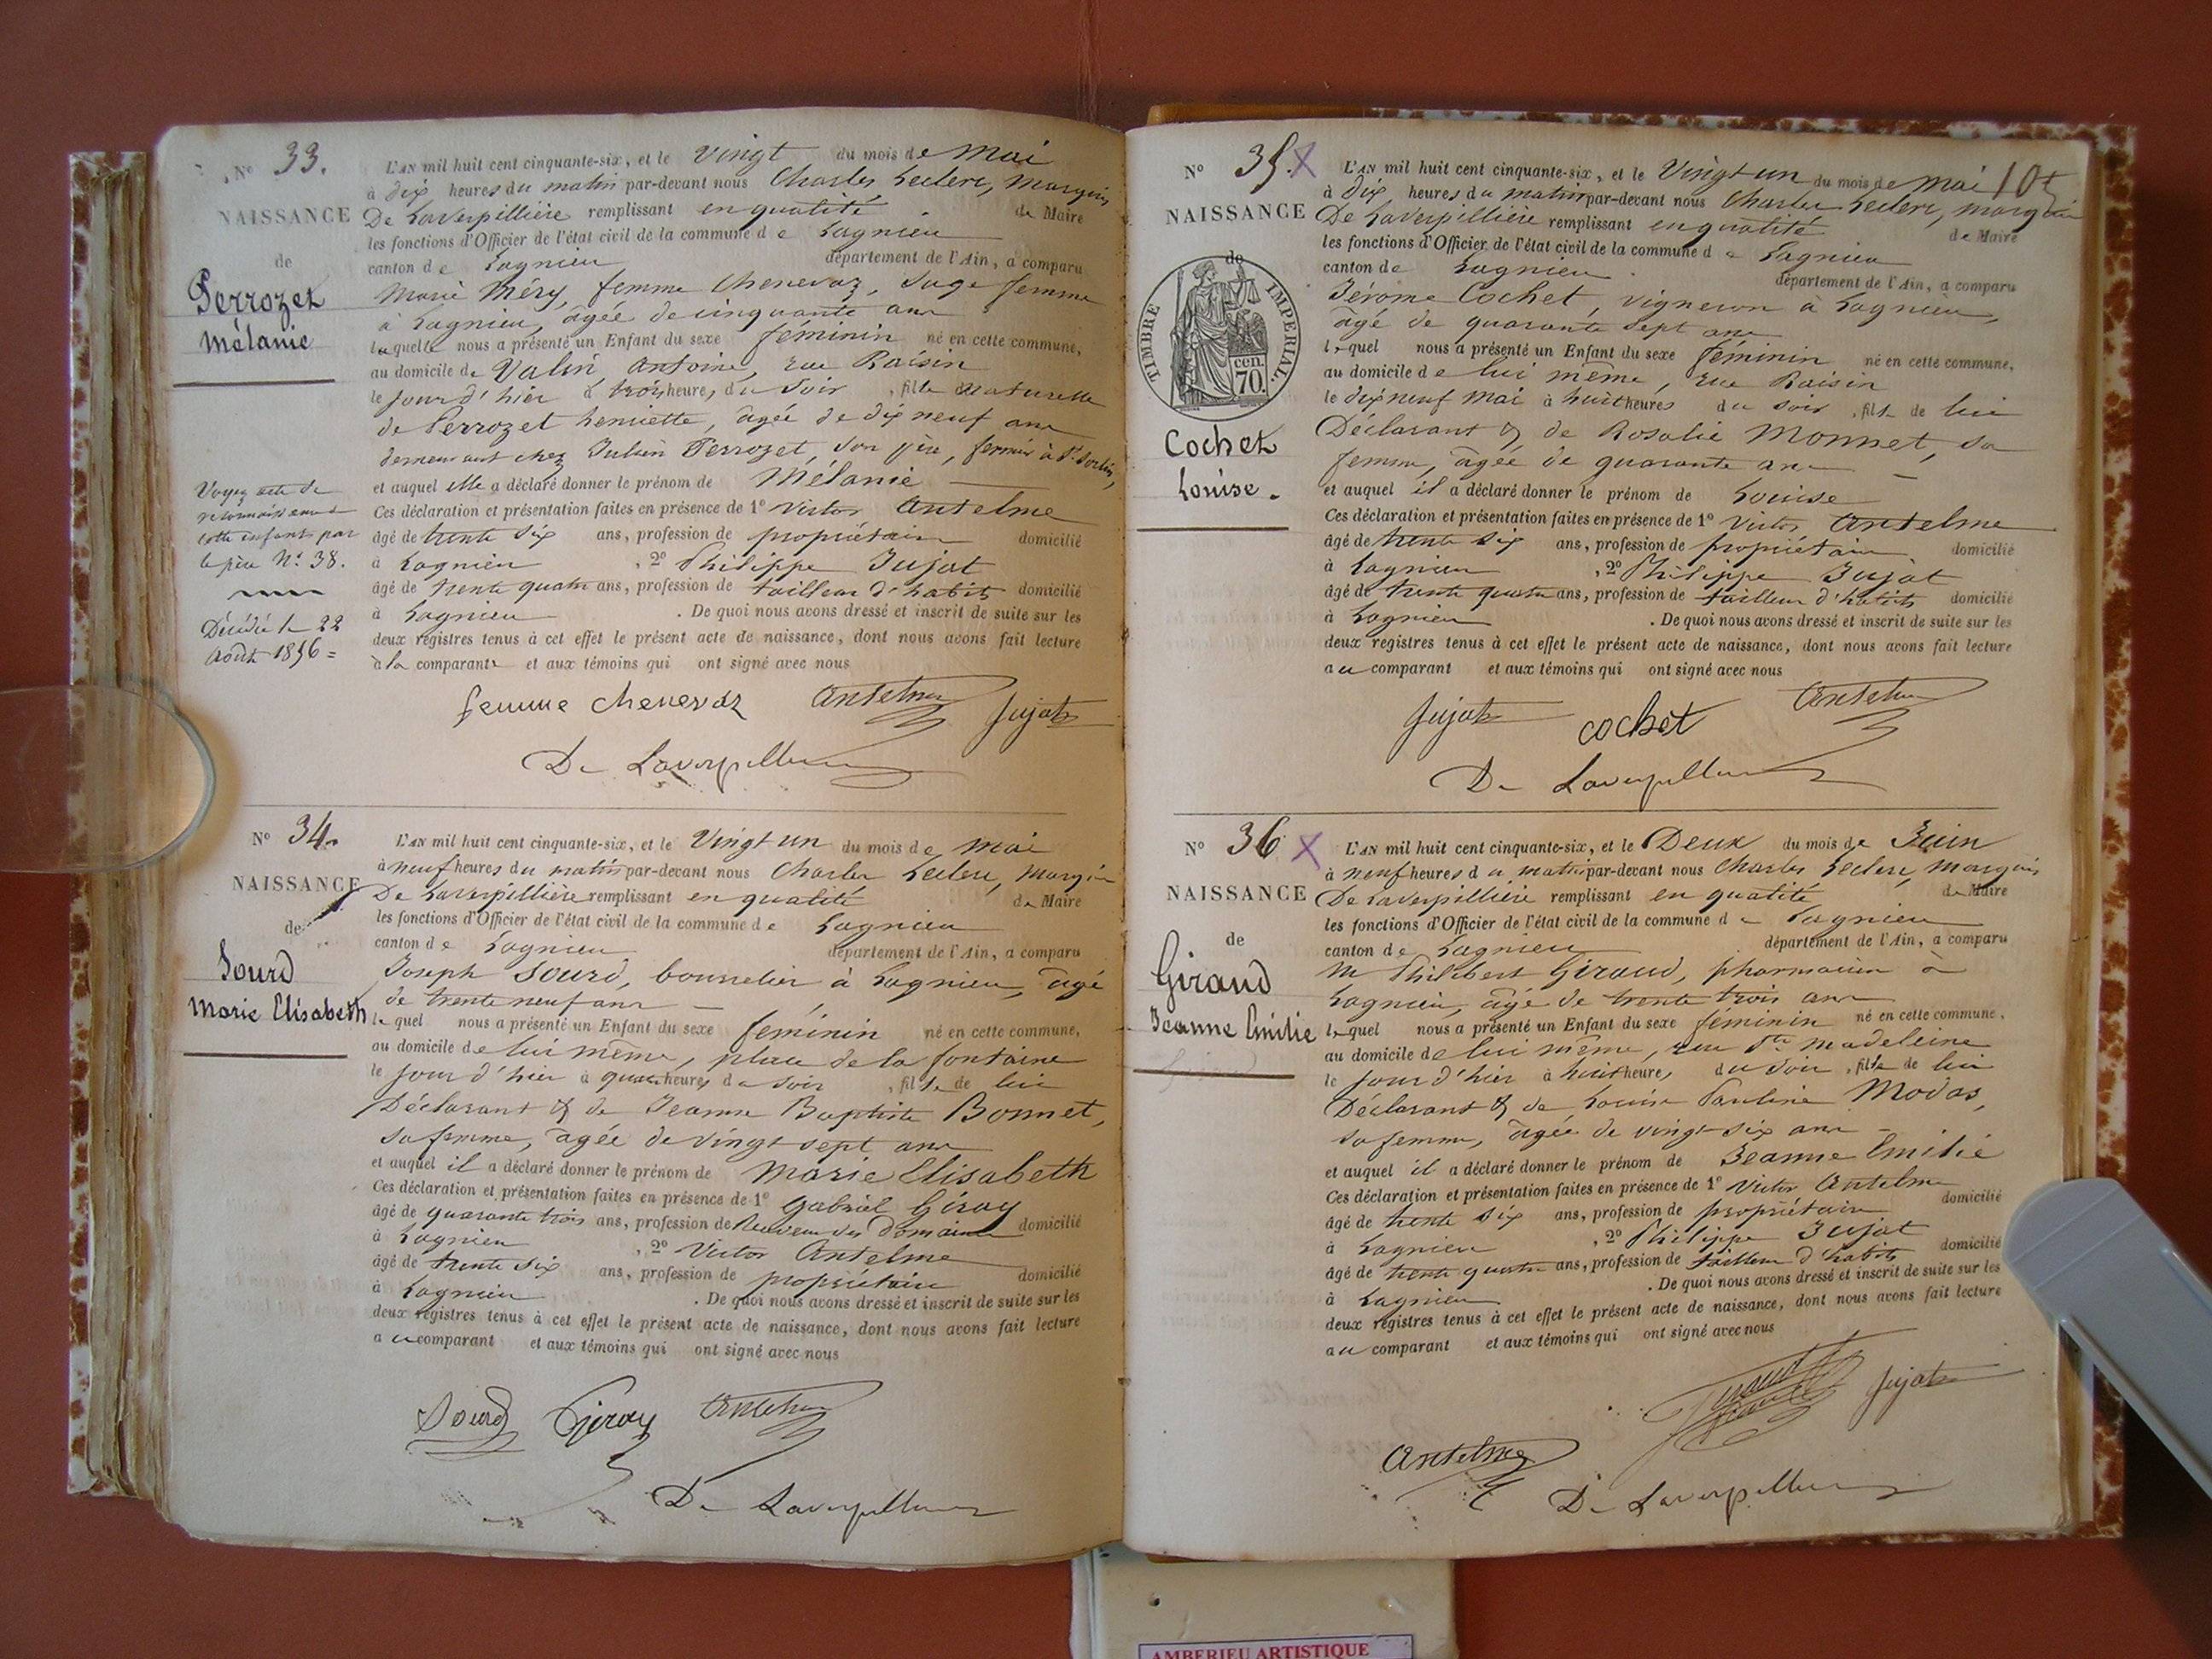 N° 33.
NAISSANCE
de
Perrozet
Mélanie
Voyez acte de
reconnaissance de
cette enfant par
le père N° 38.
Décédée le 22
Août 1856 =
L'AN mil huit cent cinquante-six, et le Vingt du mois de Mai
à dix heures du matin par-devant nous Charles Leclerc, Marquis
De Laverpillière remplissant en qualité de Maire
les fonctions d'Officier de l'état civil de la commune de Lagnieu
canton de Lagnieu département de l'Ain, a comparu
Marie Méry, femme Chenevaz, Sage femme
à Lagnieu, âgée de cinquante ans
laquelle nous a présenté un Enfant du sexe féminin né en cette commune,
au domicile de Valin, Antoine, rue Raisin
le jour d'hier à trois heures du soir, fille naturelle
de Perrozet henriette, âgée de dix neuf ans
demeurant chez Julien Perrozet, son père, fermier à St Sorlin,
et auquel elle a déclaré donner le prénom de Mélanie
Ces déclaration et présentation faites en présence de 1° Victor Antelme
âgé de trente six ans, profession de propriétaire domicilié
à Lagnieu, 2° Philippe Jujat
âgé de trente quatre ans, profession de tailleur d'habits domicilié
à Lagnieu. De quoi nous avons dressé et inscrit de suite sur les
deux registres tenus à cet effet le présent acte de naissance, dont nous avons fait lecture
à la comparante et aux témoins qui ont signé avec nous
femme chenevaz Antelme Jujat
De Laverpillière
N° 34.
NAISSANCE
de
Sourd
Marie Elisabeth
L'AN mil huit cent cinquante-six, et le Vingt un du mois de Mai
à neuf heures du matin par-devant nous Charles Leclerc, Marquis
De Laverpillière remplissant en qualité de Maire
les fonctions d'Officier de l'état civil de la commune de Lagnieu
canton de Lagnieu département de l'Ain, a comparu
Joseph Sourd, bourrelier à Lagnieu, âgé
de trente neuf ans
lequel nous a présenté un Enfant du sexe féminin né en cette commune,
au domicile de lui même, place de la fontaine
le jour d'hier à quatre heures du soir, fille de lui
Déclarant & de Jeanne Baptiste Bonnet,
sa femme, âgée de vingt sept ans
et auquel il a déclaré donner le prénom de Marie Elisabeth
Ces déclaration et présentation faites en présence de 1° Gabriel Giroy
âgé de quarante trois ans, profession de Receveur des Domaines domicilié
à Lagnieu, 2° Victor Antelme
âgé de trente six ans, profession de propriétaire domicilié
à Lagnieu. De quoi nous avons dressé et inscrit de suite sur les
deux registres tenus à cet effet le présent acte de naissance, dont nous avons fait lecture
au comparant et aux témoins qui ont signé avec nous
Sourd Giroy Antelme
De Laverpillière
N° 35. X
NAISSANCE
de
TIMBRE IMPÉRIAL.
cen.
70.
Cochet
Louise.
105
L'AN mil huit cent cinquante-six, et le Vingt un du mois de Mai
à dix heures du matin par-devant nous Charles Leclerc, Marquis
De Laverpillière remplissant en qualité de Maire
les fonctions d'Officier de l'état civil de la commune de Lagnieu
canton de Lagnieu département de l'Ain, a comparu
Jérome Cochet, vigneron à Lagnieu,
âgé de quarante sept ans
lequel nous a présenté un Enfant du sexe féminin né en cette commune,
au domicile de lui même, rue Raisin
le dix neuf Mai à huit heures du soir, fille de lui
Déclarant & de Rosalie Monnet, sa
femme, âgée de quarante ans
et auquel il a déclaré donner le prénom de Louise
Ces déclaration et présentation faites en présence de 1° Victor Antelme
âgé de trente six ans, profession de propriétaire domicilié
à Lagnieu, 2° Philippe Jujat
âgé de trente quatre ans, profession de tailleur d'habits domicilié
à Lagnieu. De quoi nous avons dressé et inscrit de suite sur les
deux registres tenus à cet effet le présent acte de naissance, dont nous avons fait lecture
au comparant et aux témoins qui ont signé avec nous
Jujat cochet Antelme
De Laverpillière
N° 36 X
NAISSANCE
de
Giraud
Jeanne Emilie
L'AN mil huit cent cinquante-six, et le Deux du mois de Juin
à neuf heures du matin par-devant nous Charles Leclerc, Marquis
De Laverpillière remplissant en qualité de Maire
les fonctions d'Officier de l'état civil de la commune de Lagnieu
canton de Lagnieu département de l'Ain, a comparu
M Philibert Giraud, pharmacien à
Lagnieu, âgé de trente trois ans
lequel nous a présenté un Enfant du sexe féminin né en cette commune,
au domicile de lui même, rue Ste Madeleine
le jour d'hier à huit heures du soir, fille de lui
Déclarant & de Louise Pauline Modas,
sa femme, âgée de vingt six ans
et auquel il a déclaré donner le prénom de Jeanne Emilie
Ces déclaration et présentation faites en présence de 1° Victor Antelme
âgé de trente six ans, profession de propriétaire domicilié
à Lagnieu, 2° Philippe Jujat
âgé de trente quatre ans, profession de tailleur d'habits domicilié
à Lagnieu. De quoi nous avons dressé et inscrit de suite sur les
deux registres tenus à cet effet le présent acte de naissance, dont nous avons fait lecture
au comparant et aux témoins qui ont signé avec nous
Giraud Jujat
Antelme
De Laverpillière
AMBERIEU ARTISTIQUE